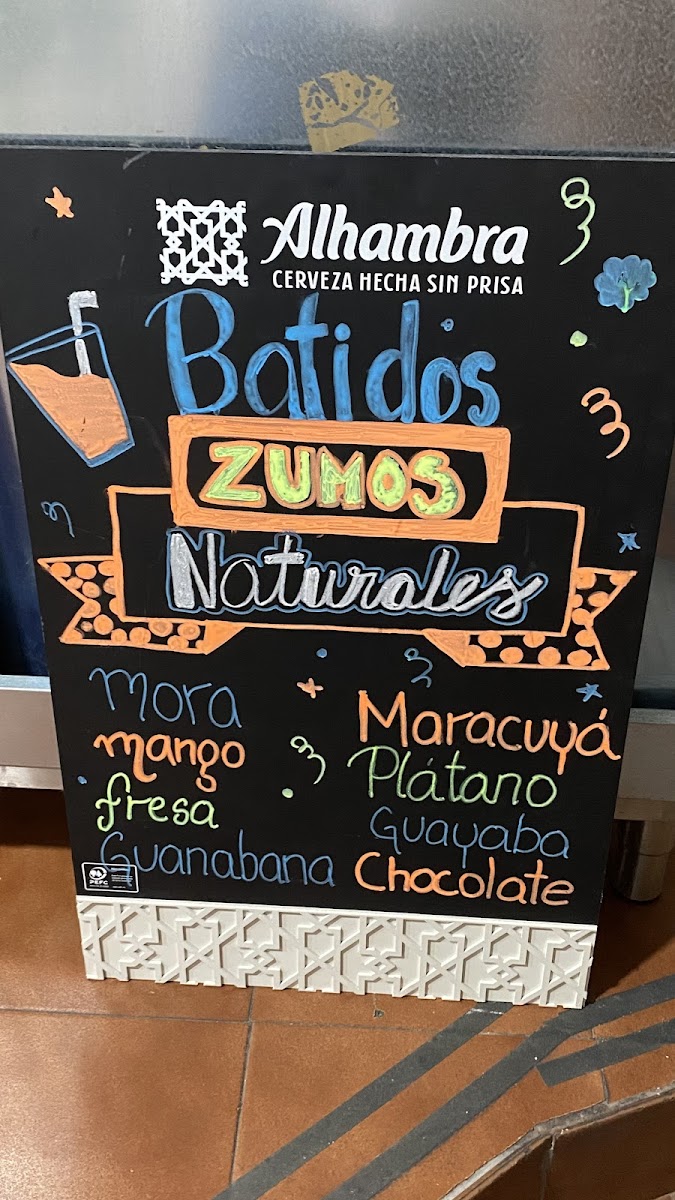 Alhambra
CERVEZA HECHA SIN PRISA
Batidos
ZUMOS
Naturales
mora
mango
fresa
Guanabana
Maracuyá
Plátano
Guayaba
Chocolate
PEFC